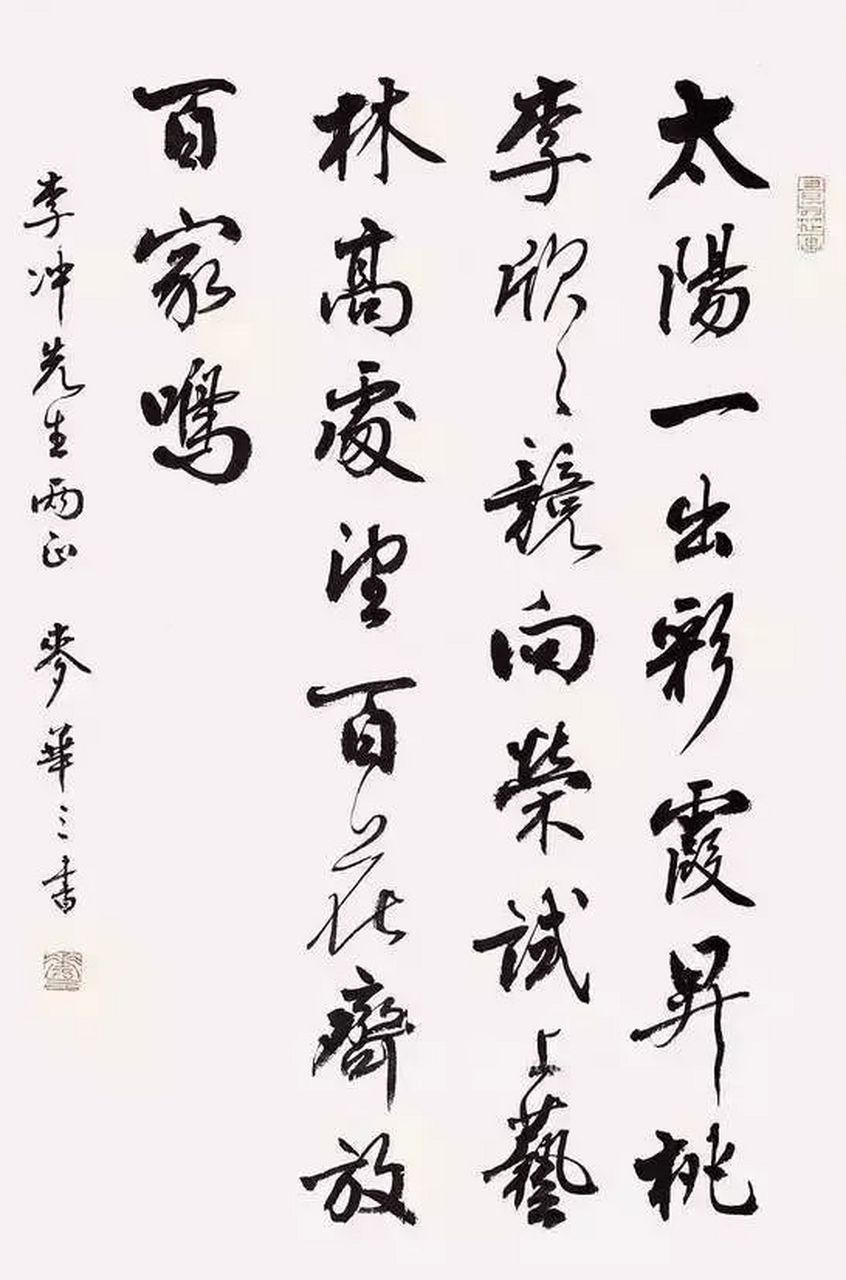 太陽一出彩霞昇桃
李欣〻競向榮試上藝
林高處望百花齊放
百家鳴
李冲先生兩正 麥華三書